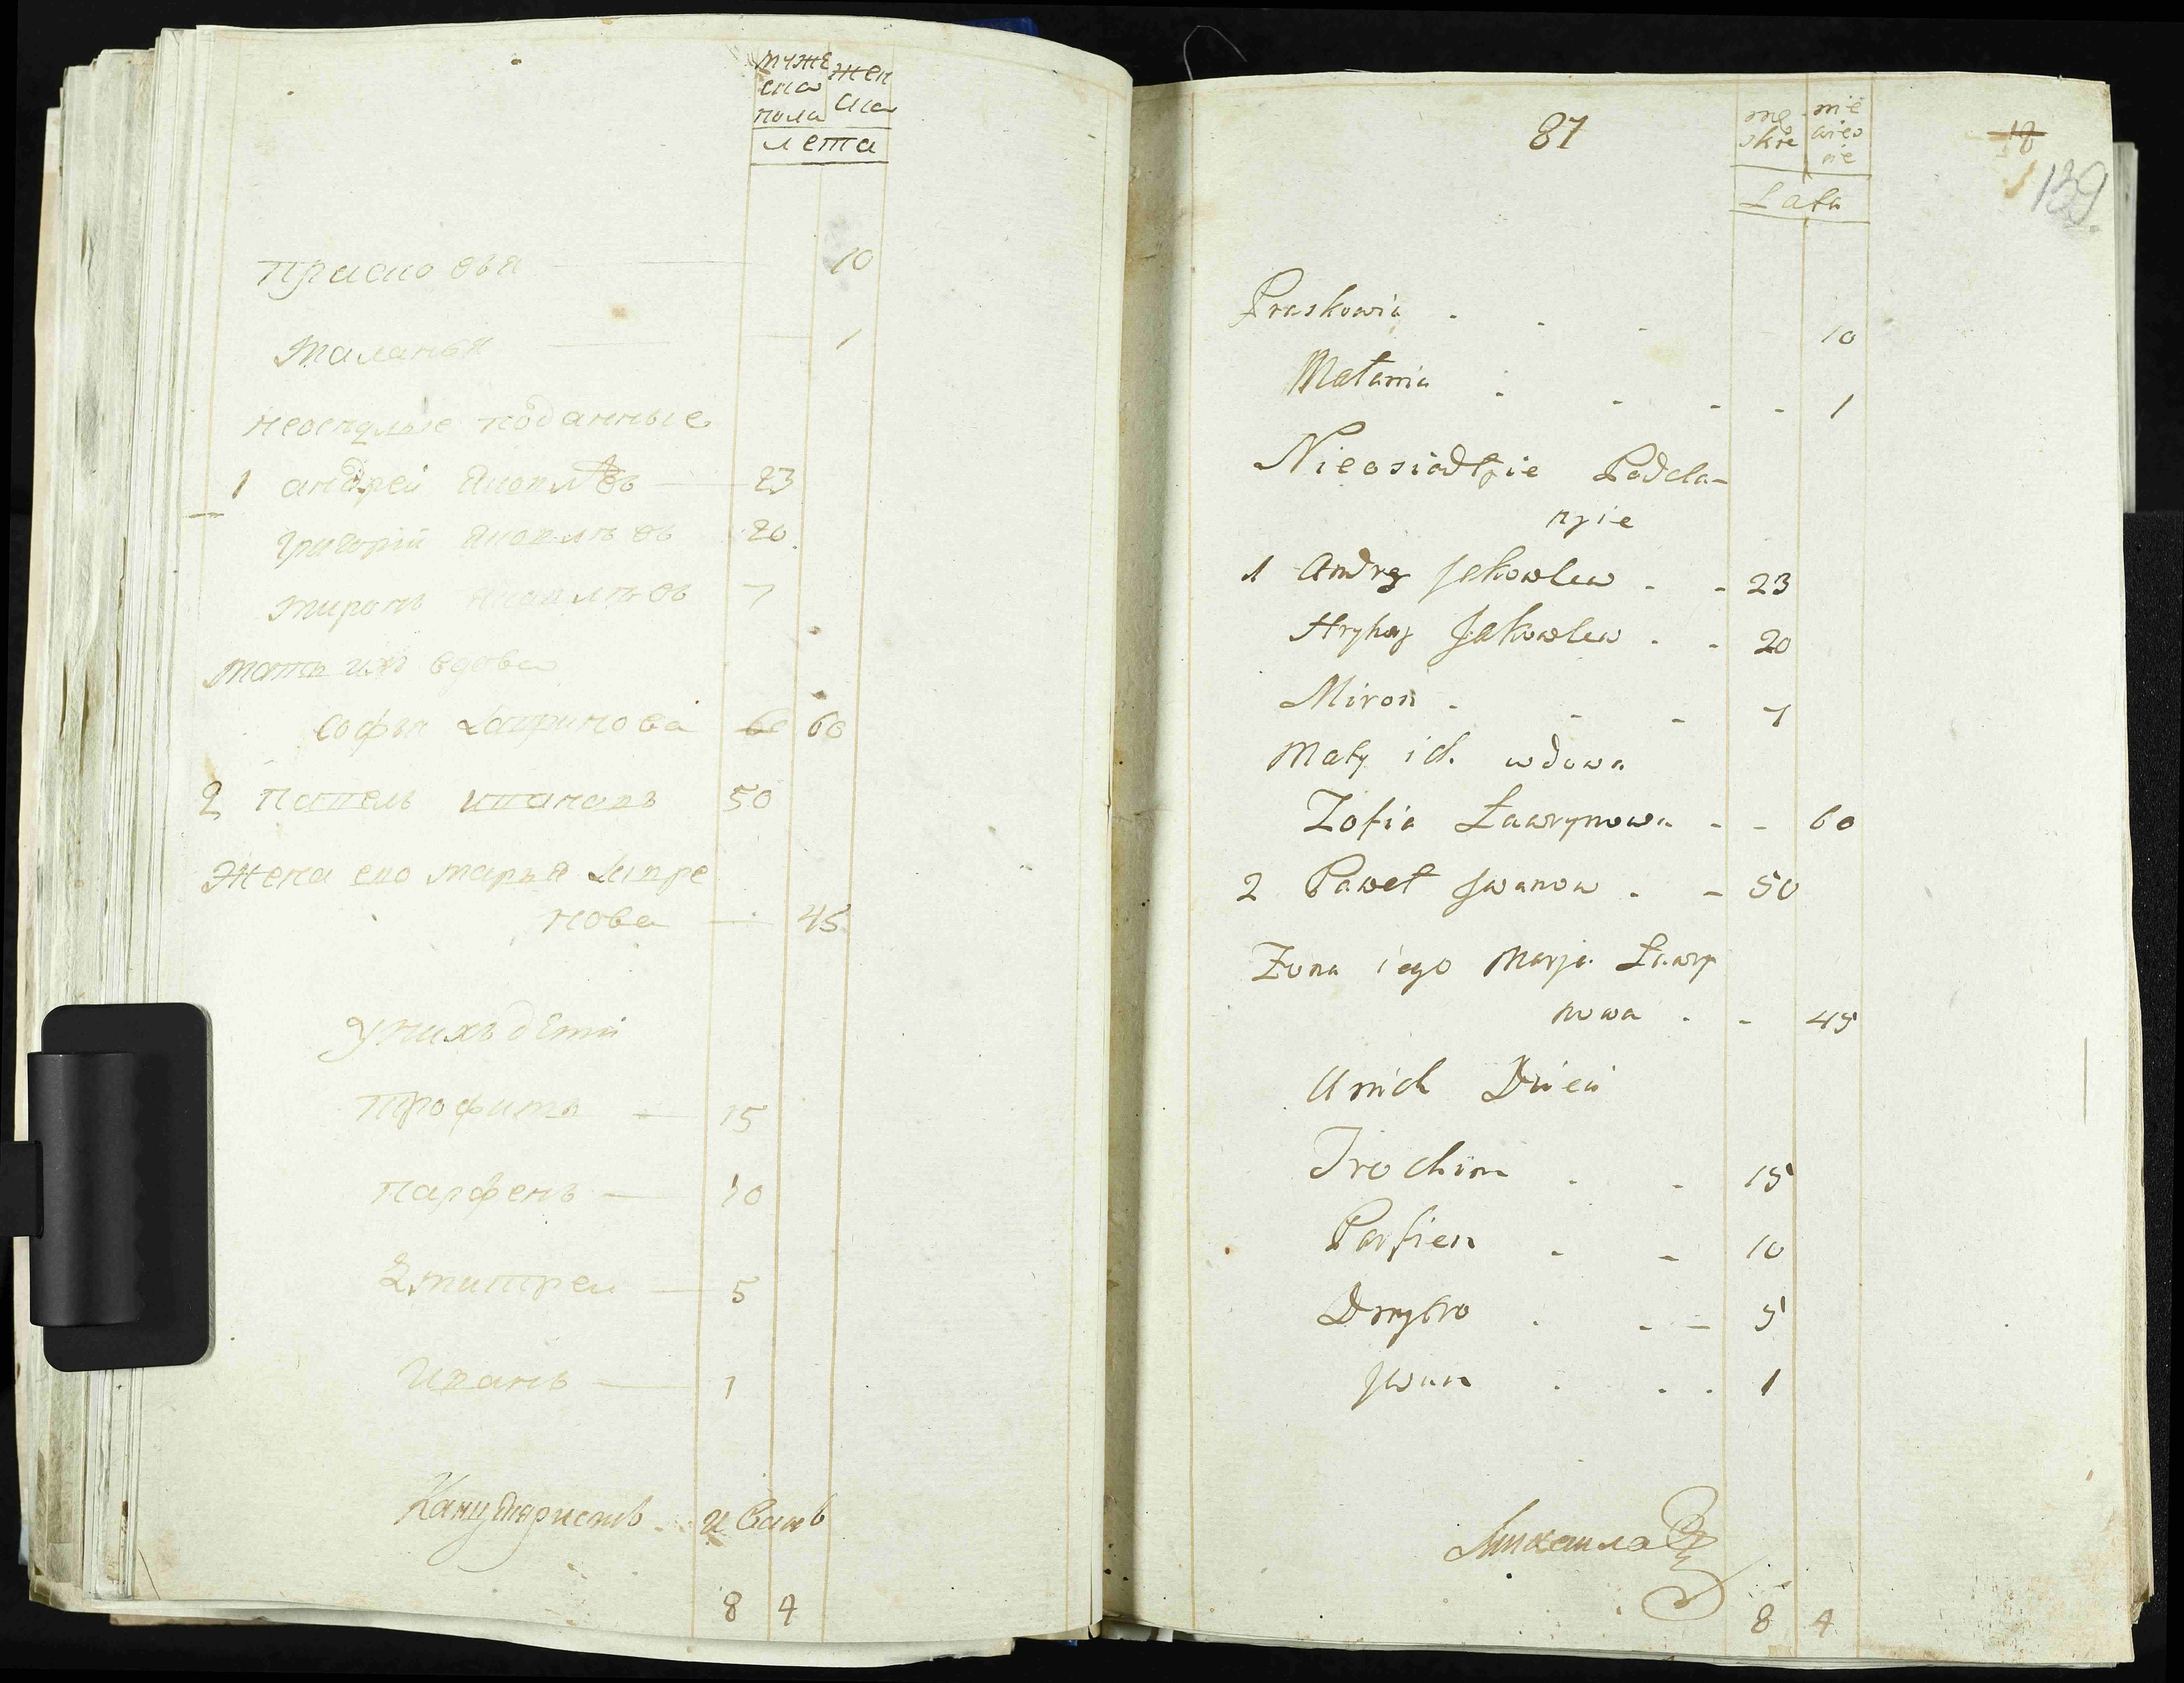 муже жен
ска ска
пола
лета
Прасковья 10
Маланья 1
неоседлые подданные
1 андрей Яковлевъ 23
григорий Яковлевъ 20
миронъ Яковлевъ 7
мать ихъ вдова
софья Лавринова 60 60
2 павелъ ивановъ 50
жена его марья Лавре
нова 45
у нихъ дети
трофимъ 15
парфенъ 10
Дмитреи 5
иванъ 1
Канцеляристъ иванъ
8 4
87
18
139
mę nie
skie wieś
cie
Lata
Praskowia 10
Małania 1
Nieosiadłzie Podda-
nzie
1 Andrzej Jakowlew 23
Hryhory Jakowlew 20
Miron 7
Maty ich wdowa
Zofia Ławrynowa 60
2 Paweł Jwanow 50
Zona iego Marja Ławry
nowa 45
U nich Dzieci
Trochim 15
Parfien 10
Dmytro 5
Jwan 1
Михаила
8 4